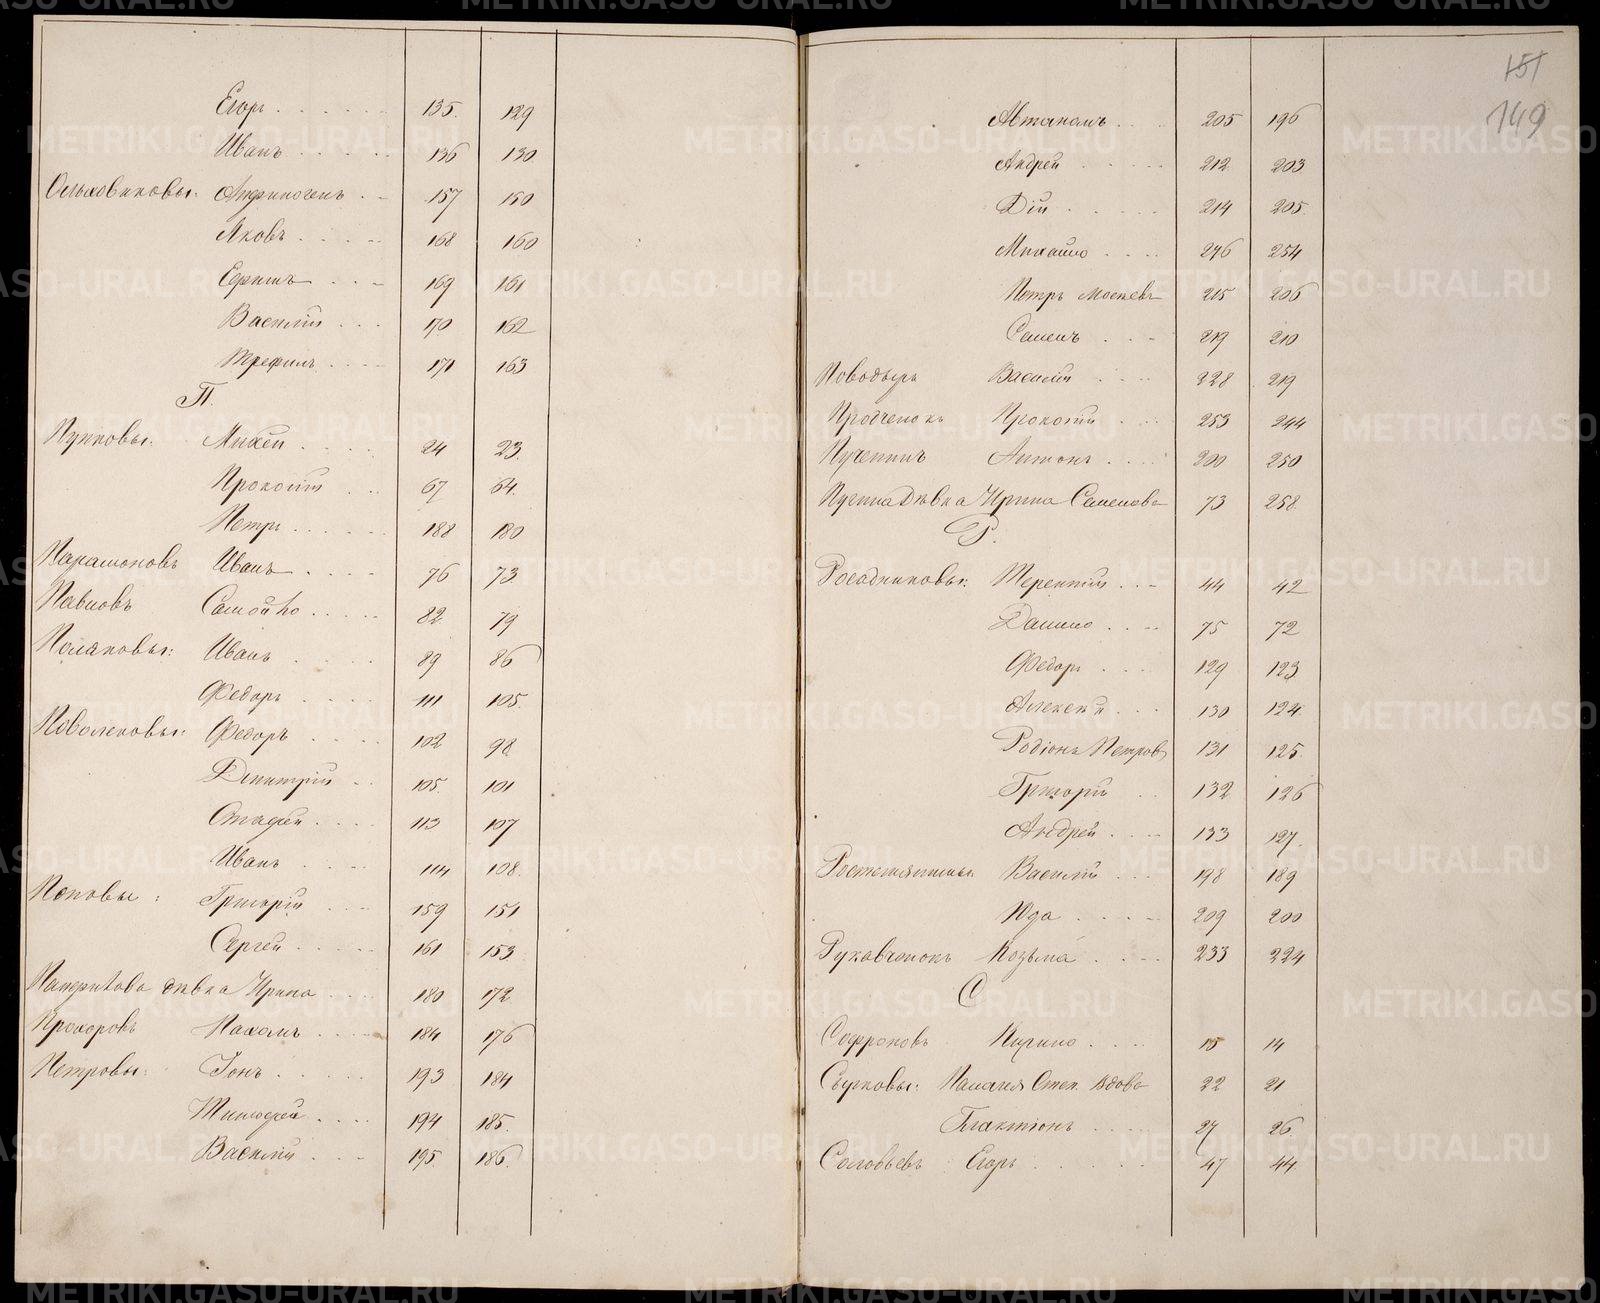 Егоръ 135. 129
Иванъ 136 130
Ольховиковы: Анфиногенъ 157 150
Яковъ 168 160
Ефимъ 169 161
Василій 170 162
Трефилъ 171 163
П.
Пупковы: Михей 24 23.
Прокопій 67 64.
Петръ 188 180
Парамоновъ Иванъ 76 73
Павловъ Самойло 82 79
Поляковы: Иванъ 89 86
Федоръ 111 105.
Поволековы: Федоръ 102 98
Дмитрій 105. 101
Стафей 113 107
Иванъ 114 108.
Поповы: Григорій 159 151
Сергей 161 153
дѣвка Ирина 180 172
Прохоровъ Пахомъ 184 176
Петровы: Іонъ 193 184
Тимофей 194 185.
Василій 195 186.
151
149
Автаномъ 205 196
Андрей 212 203
Дій 214 205.
Михайло 254
Петръ 215 206
Семенъ 219 210
Поводырь Василій 228 219
Прокопій 253 244
Антонъ 250
дѣвка Ирина Семенова 73 258
Р.
Росадниковы: Терентій 44 42
Данило 75 72
Федоръ 129 123
Алексѣй 130 124.
Родіонъ Петровъ 131 125.
Григорій 132 126
Андрей 133 127.
Василій 198 189
Юда 209 200
Рукавченокъ Козьма 233 224
С
Софроновъ Кирило 15 14
Сырковы: Палагія Степ. вдова 22 21
Галактіонъ 27 26
Соловьевъ Егоръ 47 44
METRIKI.GASO-URAL.RU